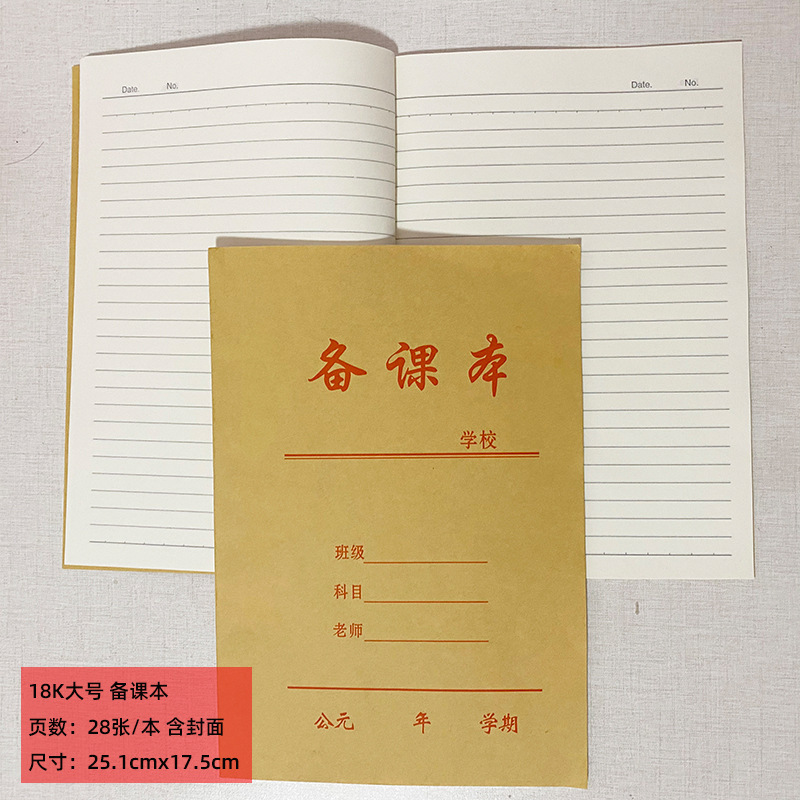 Date. No.
Date. No.
备课本
学校
班级
科目
老师
公元 年 学期
18K大号 备课本
页数：28张/本 含封面
尺寸：25.1cmx17.5cm